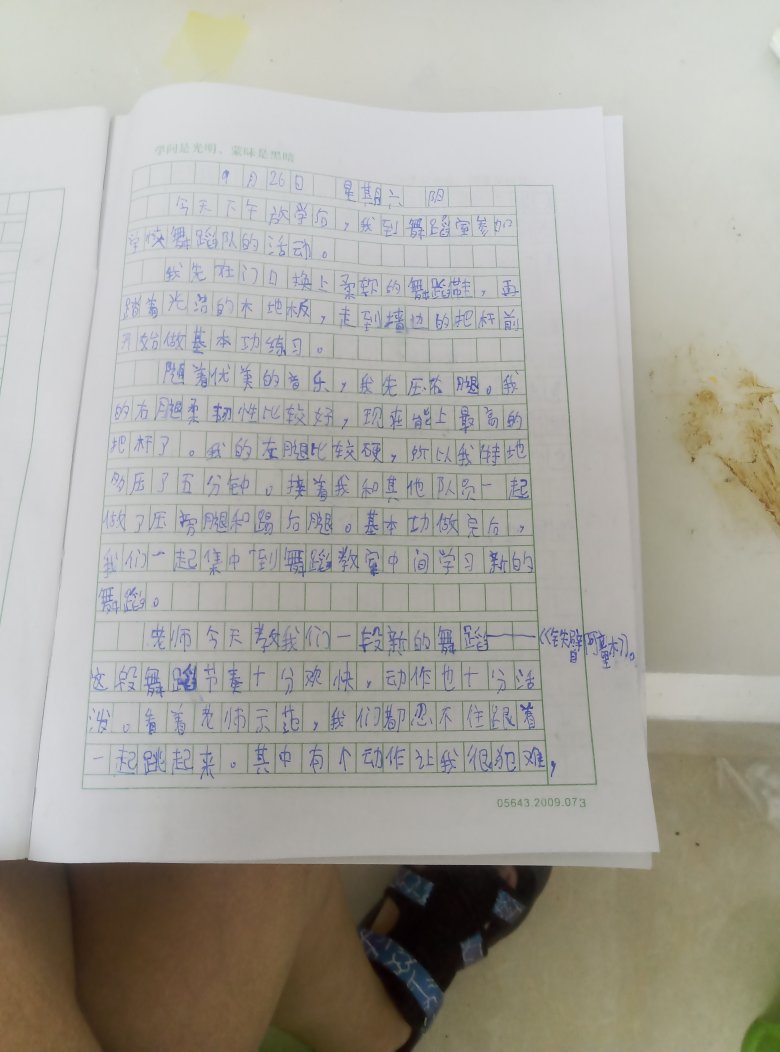 学问是光明，蒙昧是黑暗
9月26日 星期六 阴
今天下午放学后，我到舞蹈室参加
学校舞蹈队的活动。
我先在门口换上柔软的舞蹈鞋，再
踏着光洁的木地板，走到墙边的把杆前
开始做基本功练习。
随着优美的音乐，我先压右腿。我
的右腿柔韧性比较好，现在能上最高的
把杆了。我的左腿比较硬，所以我特地
多压了五分钟。接着我和其他队员一起
做了压旁腿和踢后腿。基本功做完后，
我们一起集中到舞蹈教室中间学习新的
舞蹈。
老师今天教我们一段新的舞蹈——《铁臂阿童木》。
这段舞蹈节奏十分欢快，动作也十分活
泼。看着老师示范，我们都忍不住跟着
一起跳起来。其中有个动作让我很犯难，
05643.2009.073